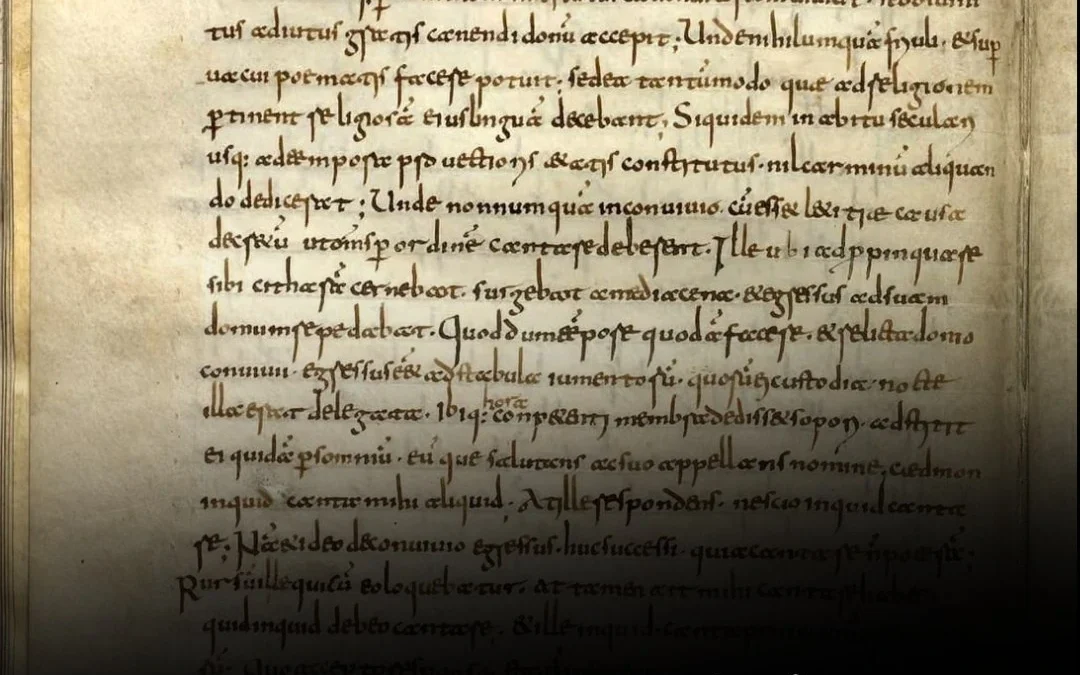 tus adiutus gratis canendi donū accepit; Unde nihil umquā friuoli. & sup̄
uacui poematis facere potuit; sed ea tantūmodo quae ad religionem
ꝑtinent religiosā eius linguā decebant; Siquidem in abitu seculari
usq: ad tempora prouectioris &atis constitutus. nil carminū aliquan
do dedicerat; Unde nonnumquā in conuiuio. cū ess& l&itiae causa
decretū ut omīs ꝑ ordinē cantare deberent. Ille ubi adppinquare
sibi citharā cernebat. surgebat a media cena. & egressus ad suam
domum repedabat. Quod dum tēpore quodā facere. & relicta domo
conuiuii. egressus ēē& ad stabula iumentorū. quorū ei custodia nocte
illa erat delegata. Ibiq: hora conp&enti membra dediss& sopori. adstitit
ei quidā ꝑ somniū. eūque salutans ac suo appellans nomine; caedmon
inquid canta mihi aliquid. At ille respondens. nescio inquid canta
re; Nā & ideo de conuiuio egressus. huc successi. quia cantare n̄ poterā;
Rursū ille qui cū eo loquebatur. at tamen ait mihi cantare habes
quid inquid debeo cantare. & ille inquid